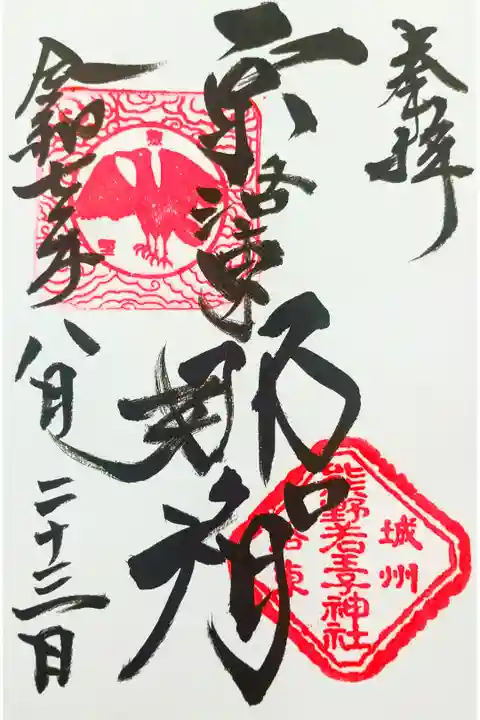 奉拝
京洛東
那智
令和七年
八月
二十三日
城州
熊野若王子神社
洛東